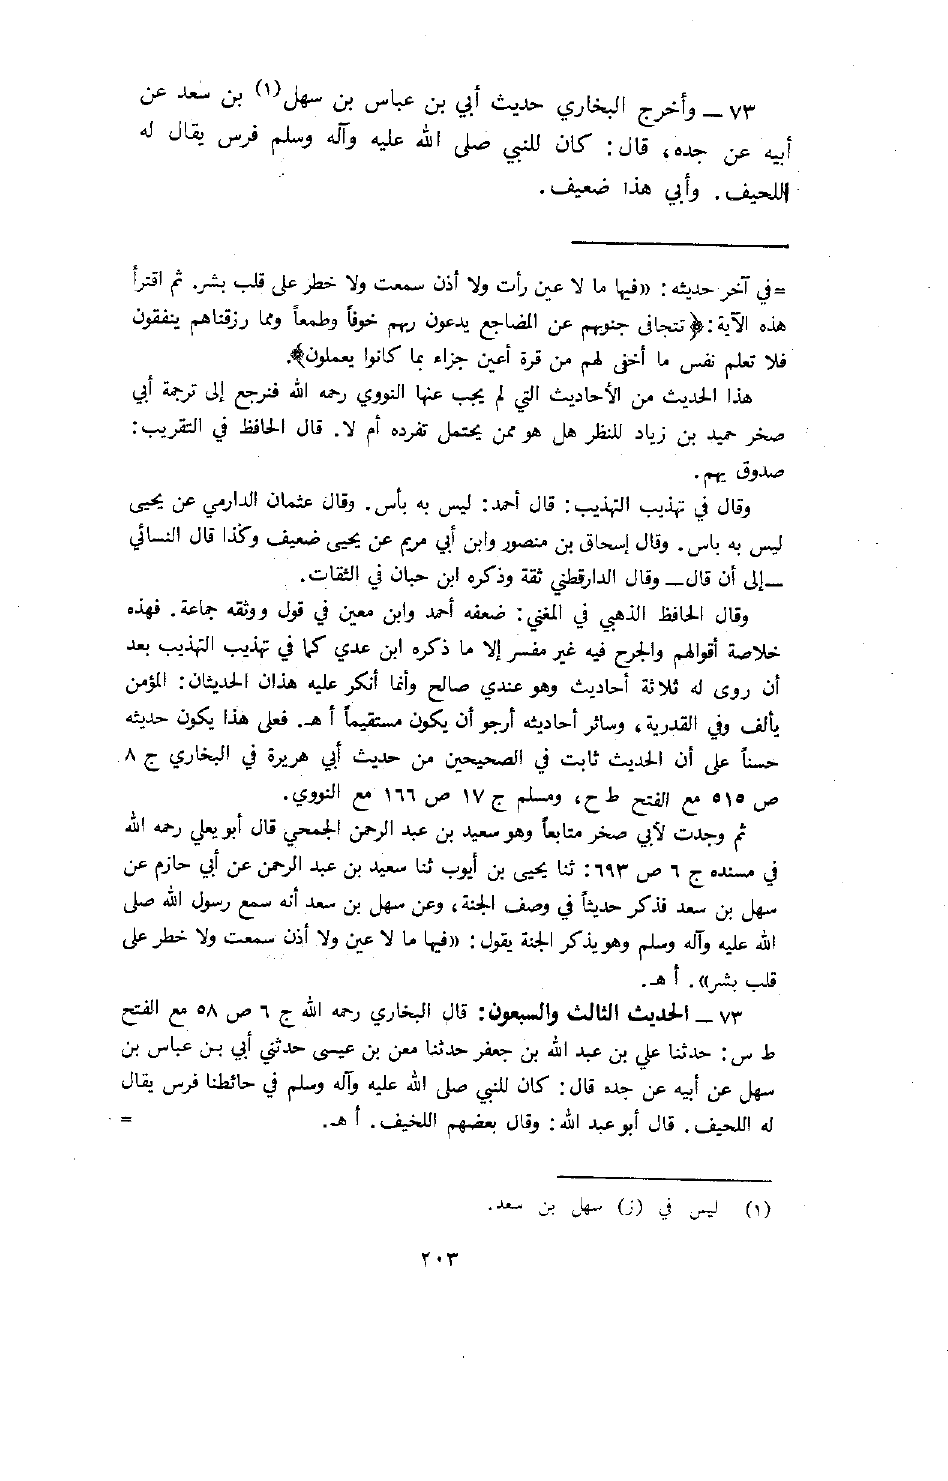 ٧٣ ــ وأخرج البخاري حديث أبي بن عباس بن سهل(١) بن سعد عن
أبيه عن جده، قال: كان للنبي صلى الله عليه وآله وسلم فرس يقال له
اللحيف. وأبي هذا ضعيف.
=في آخر حديثه: «فيها ما لا عين رأت ولا أذن سمعت ولا خطر على قلب بشر. ثم اقترأ
هذه الآية: ﴿تتجافى جنوبهم عن المضاجع يدعون ربهم خوفاً وطمعاً ومما رزقناهم ينفقون
فلا تعلم نفس ما أخفى لهم من قرة أعين جزاء بما كانوا يعملون﴾.
هذا الحديث من الأحاديث التي لم يجب عنها النووي رحمه الله فنرجع إلى ترجمة أبي
صخر حميد بن زياد للنظر هل هو ممن يحتمل تفرده أم لا. قال الحافظ في التقريب:
صدوق يهم.
وقال في تهذيب التهذيب: قال أحمد: ليس به بأس. وقال عثمان الدارمي عن يحيى
ليس به بأس. وقال إسحاق بن منصور وابن أبي مريم عن يحيى ضعيف وكذا قال النسائي
ــ إلى أن قال ــ وقال الدارقطني ثقة وذكره ابن حبان في الثقات.
وقال الحافظ الذهبي في المغني: ضعفه أحمد وابن معين في قول ووثقه جماعة. فهذه
خلاصة أقوالهم والجرح فيه غير مفسر إلا ما ذكره ابن عدي كما في تهذيب التهذيب بعد
أن روى له ثلاثة أحاديث وهو عندي صالح وأنما أنكر عليه هذان الحديثان: المؤمن
يألف وفي القدرية، وسائر أحاديثه أرجو أن يكون مستقيماً أ هـ. فعلى هذا يكون حديثه
حسناً على أن الحديث ثابت في الصحيحين من حديث أبي هريرة في البخاري ج ٨
ص ٥١٥ مع الفتح ط ح، ومسلم ج ١٧ ص ١٦٦ مع النووي.
ثم وجدت لأبي صخر متابعاً وهو سعيد بن عبد الرحمن الجمحي قال أبو يعلي رحمه الله
في مسنده ج ٦ ص ٦٩٣: ثنا يحيى بن أيوب ثنا سعيد بن عبد الرحمن عن أبي حازم عن
سهل بن سعد فذكر حديثاً في وصف الجنة، وعن سهل بن سعد أنه سمع رسول الله صلى
الله عليه وآله وسلم وهو يذكر الجنة يقول: «فيها ما لا عين ولا أذن سمعت ولا خطر على
قلب بشر». أ هـ.
٧٣ ــ الحديث الثالث والسبعون: قال البخاري رحمه الله ج ٦ ص ٥٨ مع الفتح
ط س: حدثنا علي بن عبد الله بن جعفر حدثنا معن بن عيسى حدثني أبي بن عباس بن
سهل عن أبيه عن جده قال: كان للنبي صلى الله عليه وآله وسلم في حائطنا فرس يقال
له اللحيف. قال أبو عبد الله: وقال بعضهم اللخيف. أ هـ. =
(١) ليس في (ز) سهل بن سعد.
٢٠٣